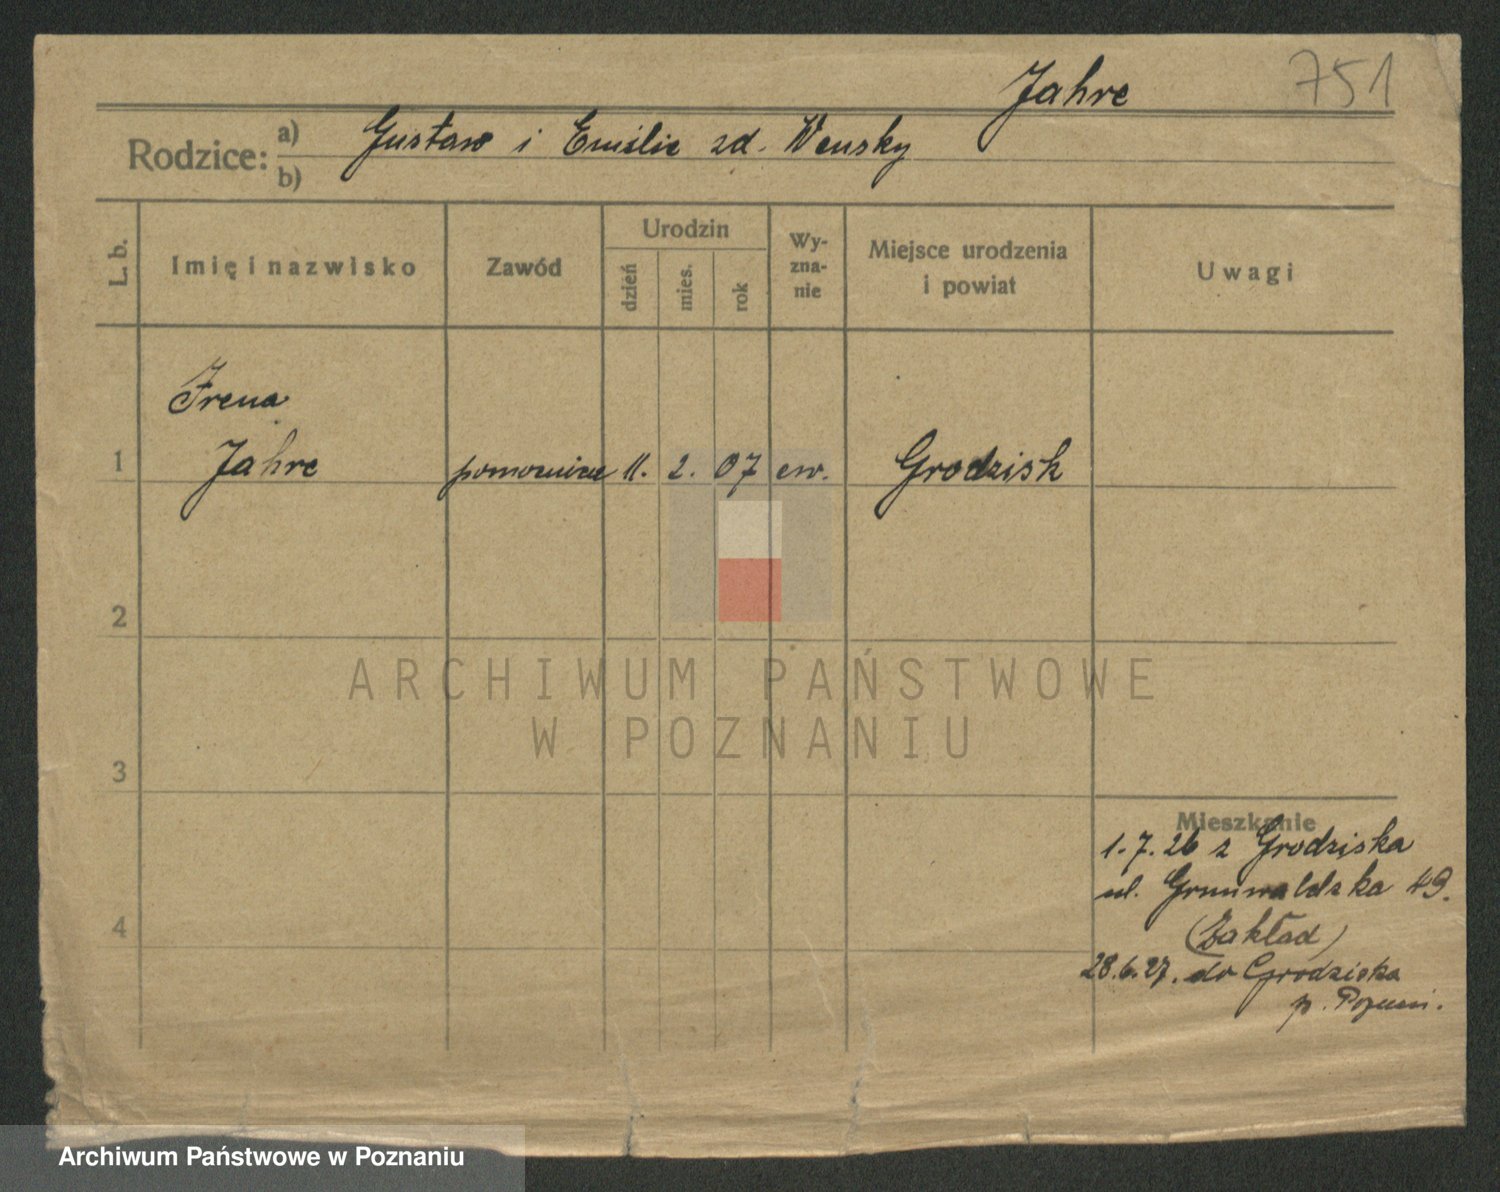 Jahre
751
Rodzice:
a) Gustaw i Emilie zd. Wensky
b)
L. b.
Imię i nazwisko
Zawód
Urodzin
dzień
mies.
rok
Wy-
zna-
nie
Miejsce urodzenia
i powiat
Uwagi
Irena
1 Jahre pomocnica 11. 2. 07 ew. Grodzisk
2
3
4
Mieszkanie
1.7.26 z Grodziska
ul. Grunwaldzka 49.
(Zakład)
28.6.27. do Grodziska
p.
ARCHIWUM PAŃSTWOWE
W POZNANIU
Archiwum Państwowe w Poznaniu